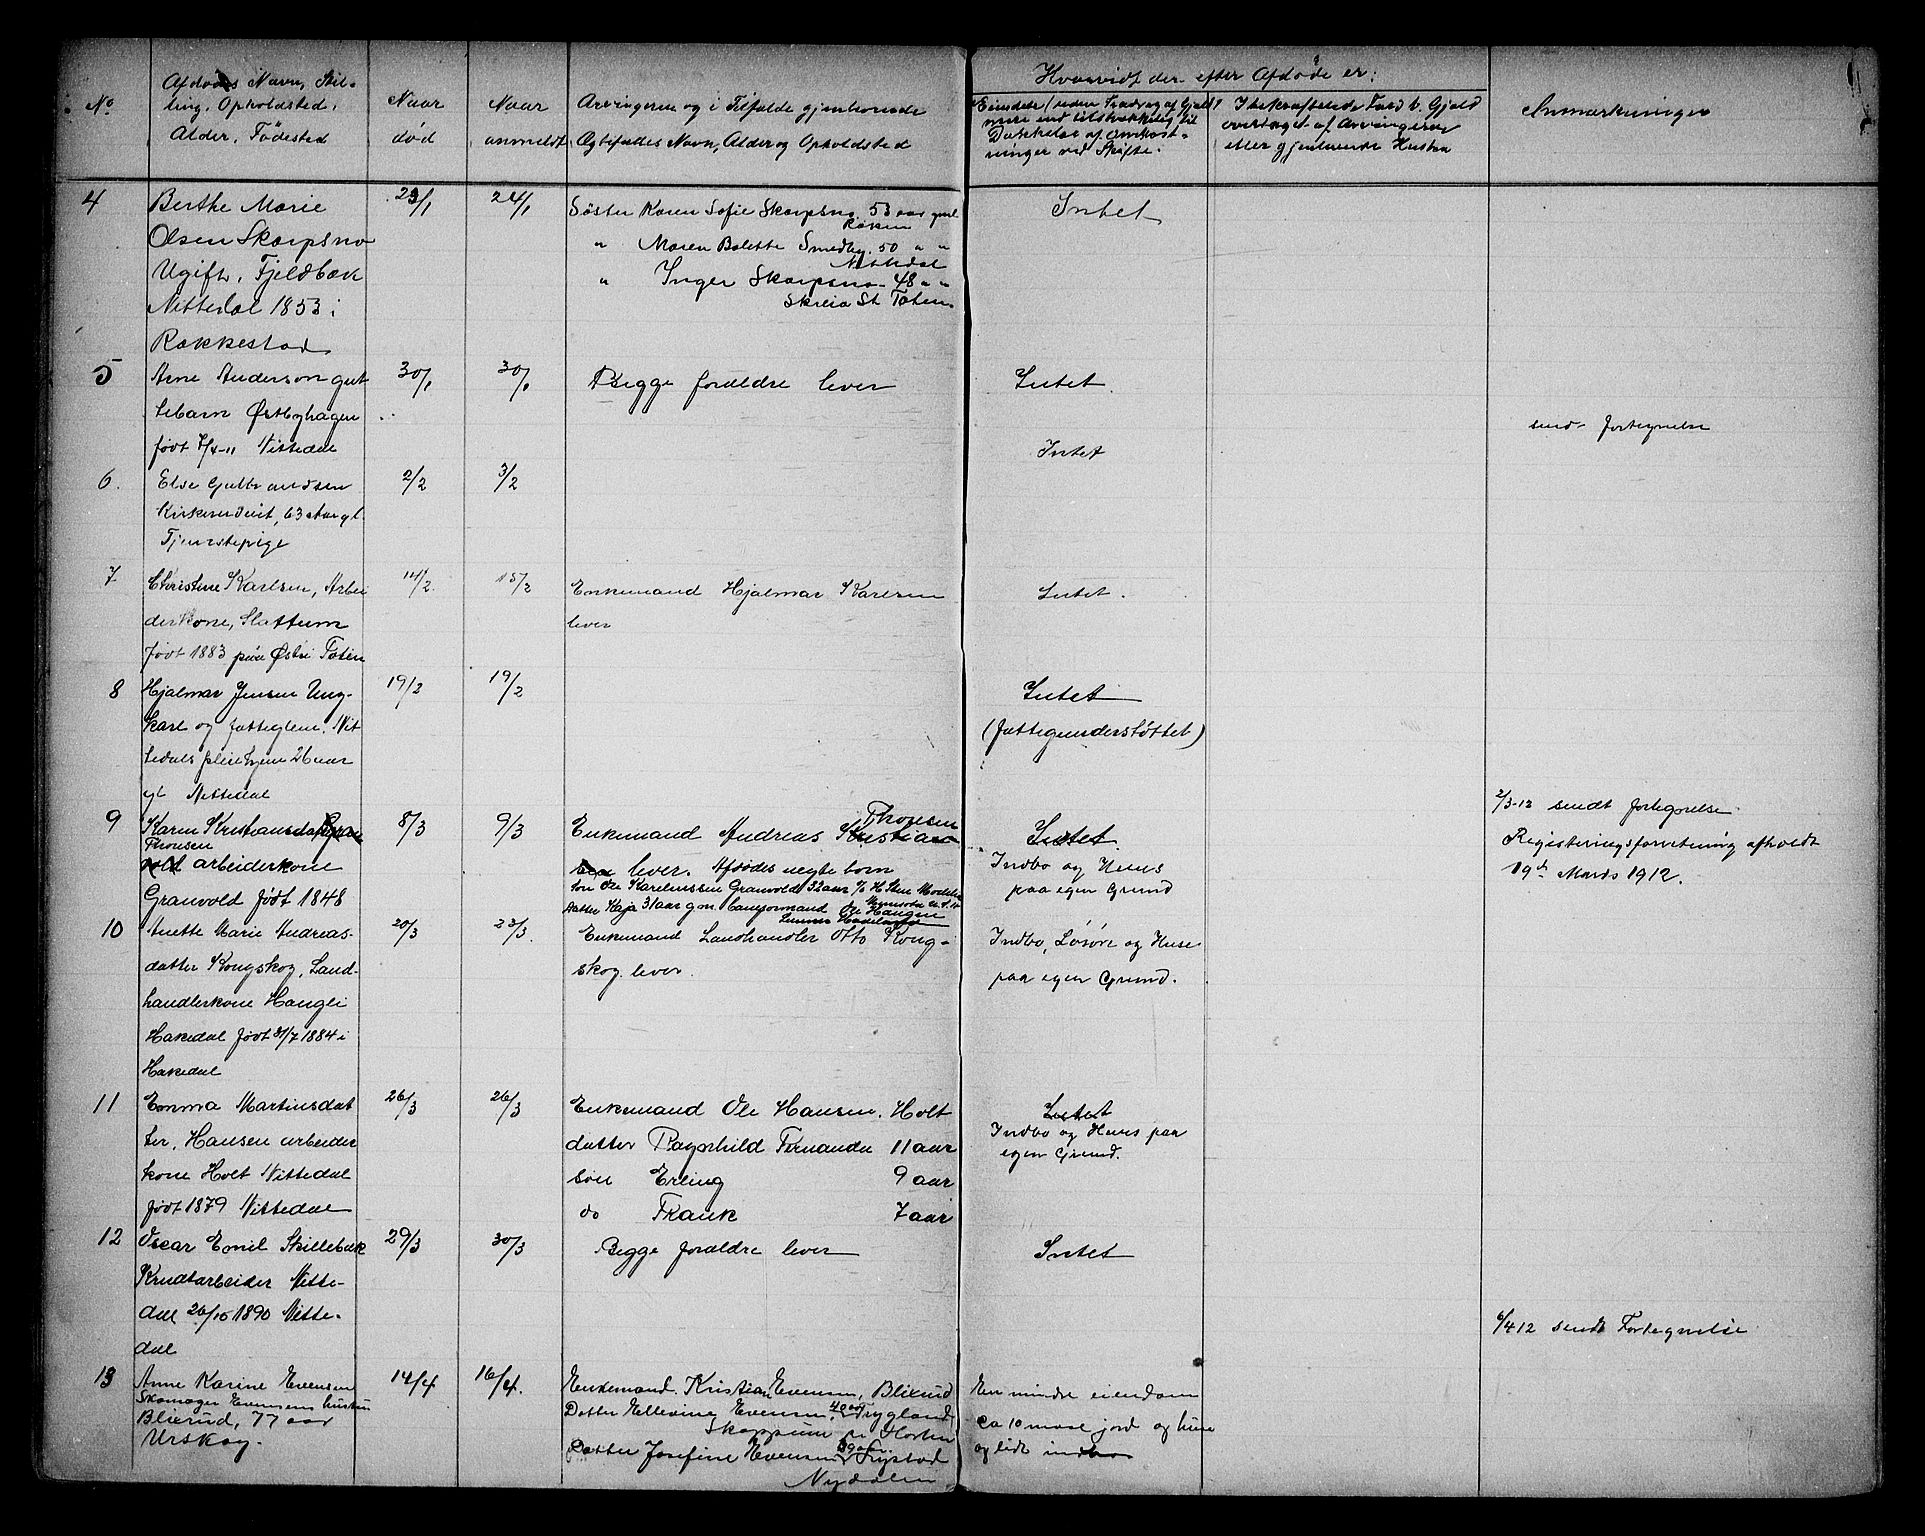 No
Afdødes Navn, Stil-
ling, Opholdsted,
Alder, Fødested
Naar
død
Naar
anmeldt
Arvingerne og i Tilfælde gjenlevende
Ægtefælles Navn, Alder og Opholdsted
Hvorvidt der efter Afdøde er:
Eiendele (uden Fradrag af Gjæld)
mere end tilstrækkelig til
Dækkelse af Omkost-
ninger ved Skifte.
eller gjenlevende Hustru
Anmærkninger
4
Berthe Marie
Olsen Skarpsno
Ugift, Fjeldbæk
Nittedal 1853 i
Rakkestad
23/1
24/1
Søster Karen Sofie Skarpsno 53 aar gml
Røken
" Maren Bolette Smedby 50 " "
Nittedal
" Inger Skarpsno 48 " "
Skreia St Toten
Intet
5
Arne Anderson gut
tebarn Østbyhagen
født 7/4-11 Nittedal
30/1
30/1
Begge forældre lever
Intet.
send fortegnelse
6.
Else Gulbrandsen
63 Aar gl.
Tjenestepige
2/2
3/2
Intet
7
Christine Karlsen, Arbei
derkone, Slattum
født 1883 paa Østre Toten
14/2.
15/2
Enkemand Hjalmar Karlsen
lever
Intet.
8
Hjalmar Jensen Ung-
karl og fattiglem. Nit
tedals pleiehjem 26 aar
gl Nittedal
19/2
19/2
Intet
(fattigunderstøttet)
9
Karen Kristiansdatter
Thonsen
arbeiderkone
Granvold født 1848
8/3
9/3
Thonsen
Enkemand Andreas Kristian
sen lever. Afdødes uegte born
søn Ole Karelinssen Granvold 32 aar
datter Kaja 31 aar g.m. Ole Haugen
Intet
Indbo og Huus
paa egen Grund
2/3-12 sendt fortegnelse
Registreringsforretning afholdt
19de Marts 1912.
10
Anette Marie Andreas-
datter Kongskog, Land-
handlerkone Haugli
Hakedal født 31/7 1884 i
Hakedal
20/3
23/3.
Enkemand Landhandler Otto Kong-
skog lever.
Indbo, Løsøre og Huse
paa egen Grund.
11
Emma Martinsdat
ter, Hansen arbeider
kone Holt Nittedal
født 1879 Nittedal
26/3
26/3
Enkemand Ole Hansen, Holt
datter Ragnhild Fernanda 11 aar
søn Erling 9 aar
do Frank 7 aar
Intet
Indbo og Huus paa
egen Grund.
12
Oscar Emil Skillebæk
Krudtarbeider Nitte-
dal 26/10 1890 Nitte-
dal
29/3
30/3
Begge forældre lever
Intet
6/4 12 sendt Fortegnelse
13
Anne Karine Evensen
Skomager Evensens hustru
Blixrud, 77 aar
Urskog.
14/4
16/4.
Enkemand. Kristian Evensen, Blixrud
Datter Ellevine Evensen, 40 aar Trygland
Skoppum pr Horten
Datter Josefine Evensen 39 aar.
Nydalen
En mindre eiendom
ca 10 maal jord og huse
og lidt indbo